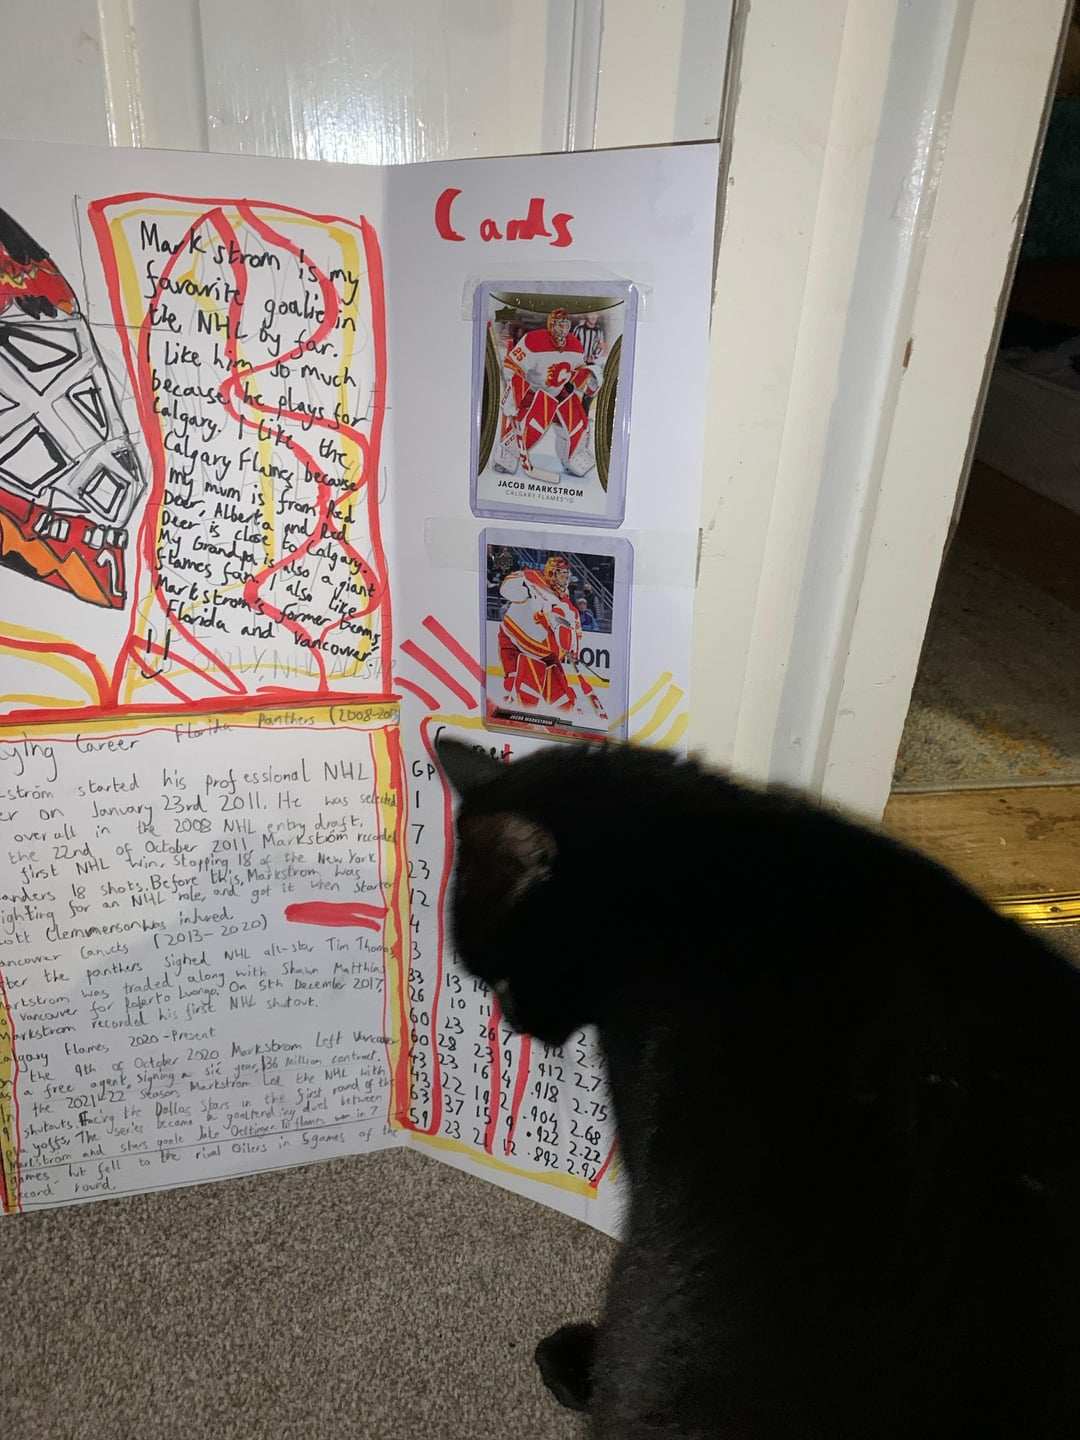 Markstrom is my
favourite goalie in
the NHL by far.
I like him so much
because he plays for
Calgary. I like the
Calgary Flames because
my mum is from Red
Deer, Alberta and Red
Deer is close to Calgary.
My Grandpa is also a giant
flames fan. I also like
Markstrom's former teams
Florida and Vancouver
!!
Cards
25
JACOB MARKSTROM
CALGARY FLAMES G
on
JACOB MARKSTROM
ying Career Florida Panthers (2008-2013
ström started his professional NHL
er on January 23rd 2011. He was selected
overall in the 2008 NHL entry draft,
the 22nd of October 2011, Markström recorded
first NHL win, stopping 18 of the New York
anders 18 shots. Before this, Markstrom was
ighting for an NHL role, and got it when starter
ott Clemmenson was injured.
ancouver Canucks (2013-2020)
ter the panthers signed NHL all-star Tim Thomas,
arkstrom was traded along with Shawn Matthias
o vancouver for Roberto Luongo. On 5th December 2017,
Markstrom recorded his first NHL shutout.
algary Flames 2020-Present
on the 9th of October 2020 Markstrom Left Vancouver
as a free agent, signing a six year, $36 Million contract.
In the 2021-22 season, Markstrom led the NHL with
9 shutouts. Facing the Dallas Stars in the first round of the
playoffs, The series became a goaltending duel between
Markstrom and stars goalie Jake Oettinger. The flames won in 7
games, but fell to the rival Oilers in 5 games of the
second round.
GP
1
7
23
12
4
3
33 13 14
26 10 11
60 23 26 7 2.
60 28 23 9 .912 2.7
43 23 16 4 .912 2.7
43 22 19 2 .918 2.75
63 37 15 9 .904 2.68
59 23 21 12 .922 2.22
.892 2.92